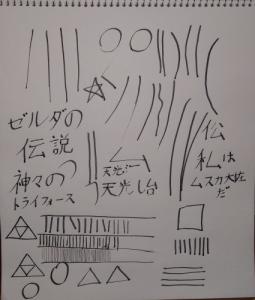 ゼルダの
伝説
神々の
トライフォース
天光
天光し台
伝
私は
ムスカ大佐
だ